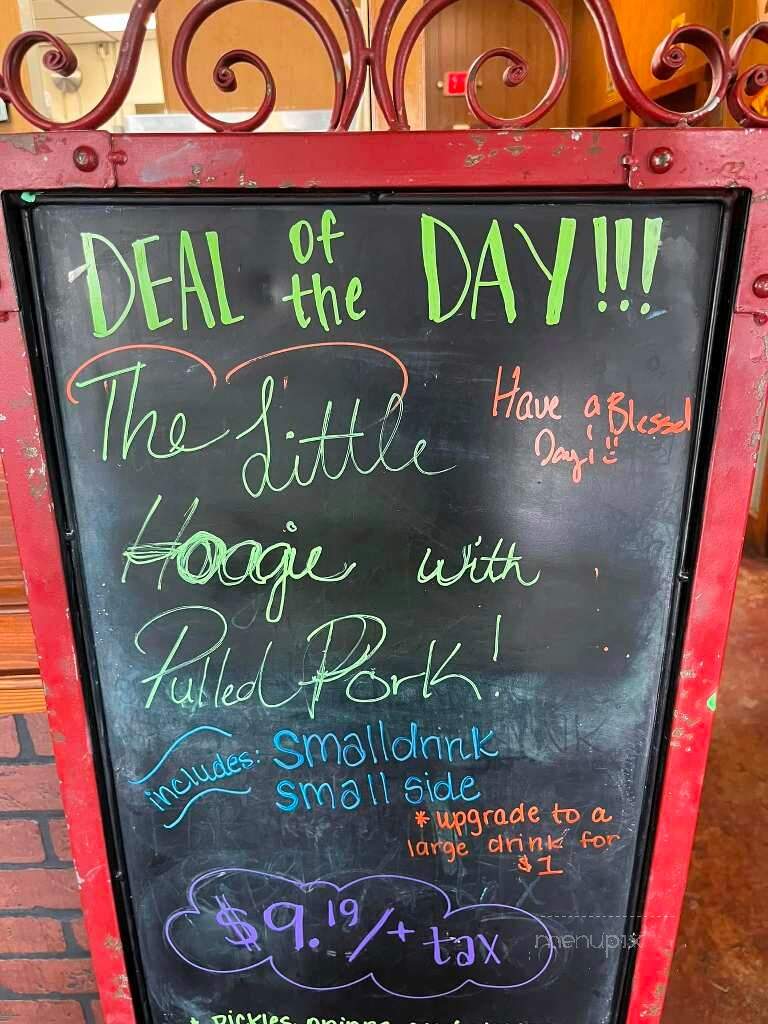 DEAL of the DAY!!!
The Little
Have a Blessed
Day!!!
Hoagie with
Pulled Pork!
includes: small drink
small side
* upgrade to a
large drink for
$1
$9.19/+ tax
menupix
* Pickles, onions